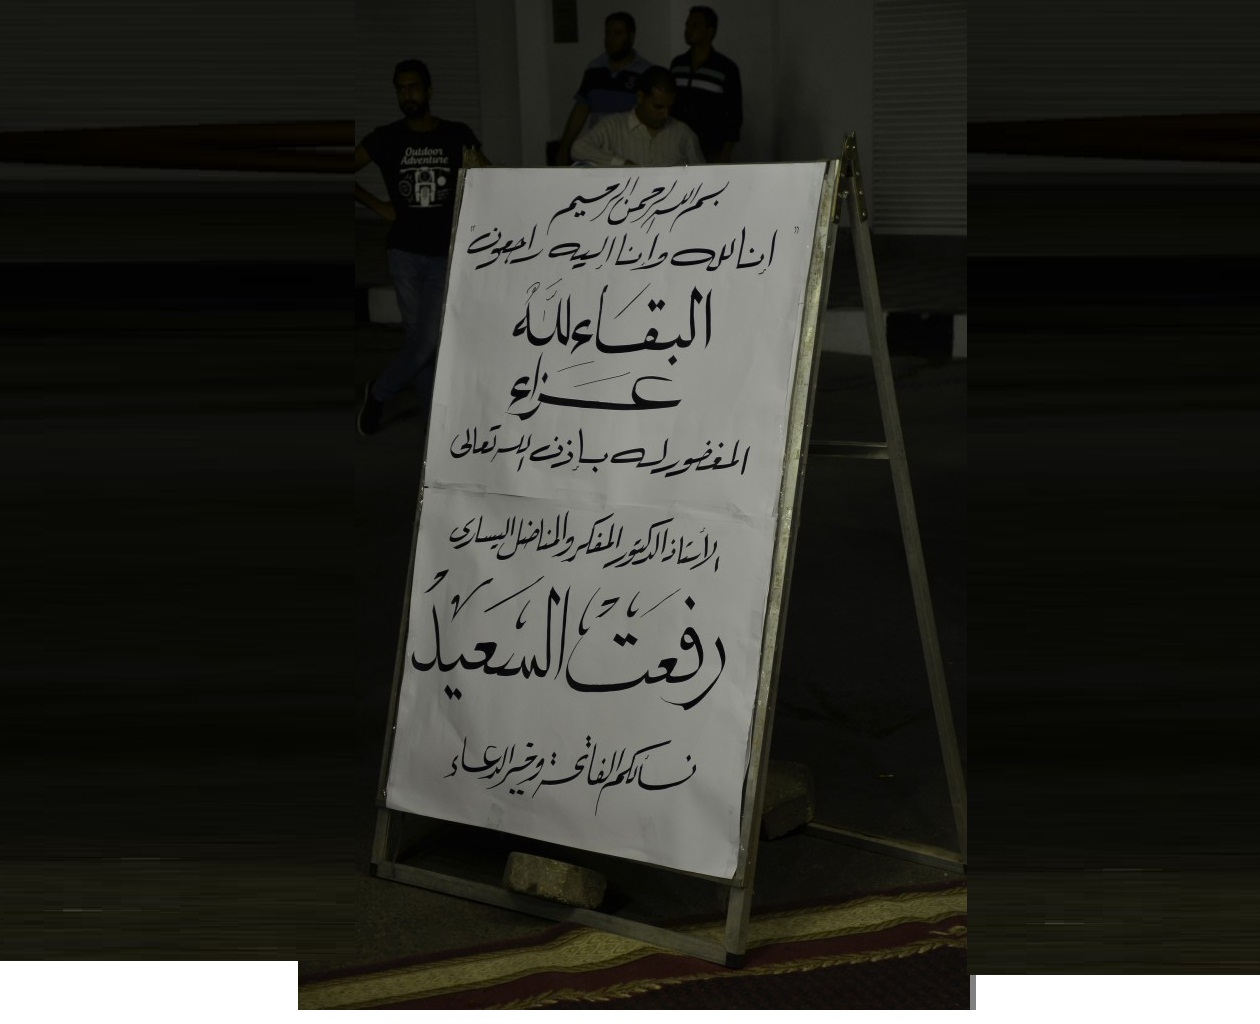 Outdoor
Adventure
بسم الله الرحمن الرحيم
"إنا لله وإنا إليه راجعون"
البقاء لله
عزاء
المغفور له بإذن الله تعالى
الأستاذ الدكتور المفكر والمناضل اليسارى
رفعت السعيد
نسألكم الفاتحة وخير الدعاء